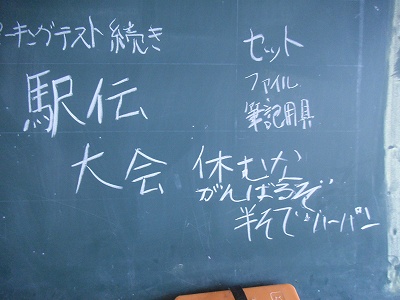 ーキングテスト続き
セット
ファイル
筆記用具
駅伝
大会
休むな
がんばろぞ
半そで、ハーパン